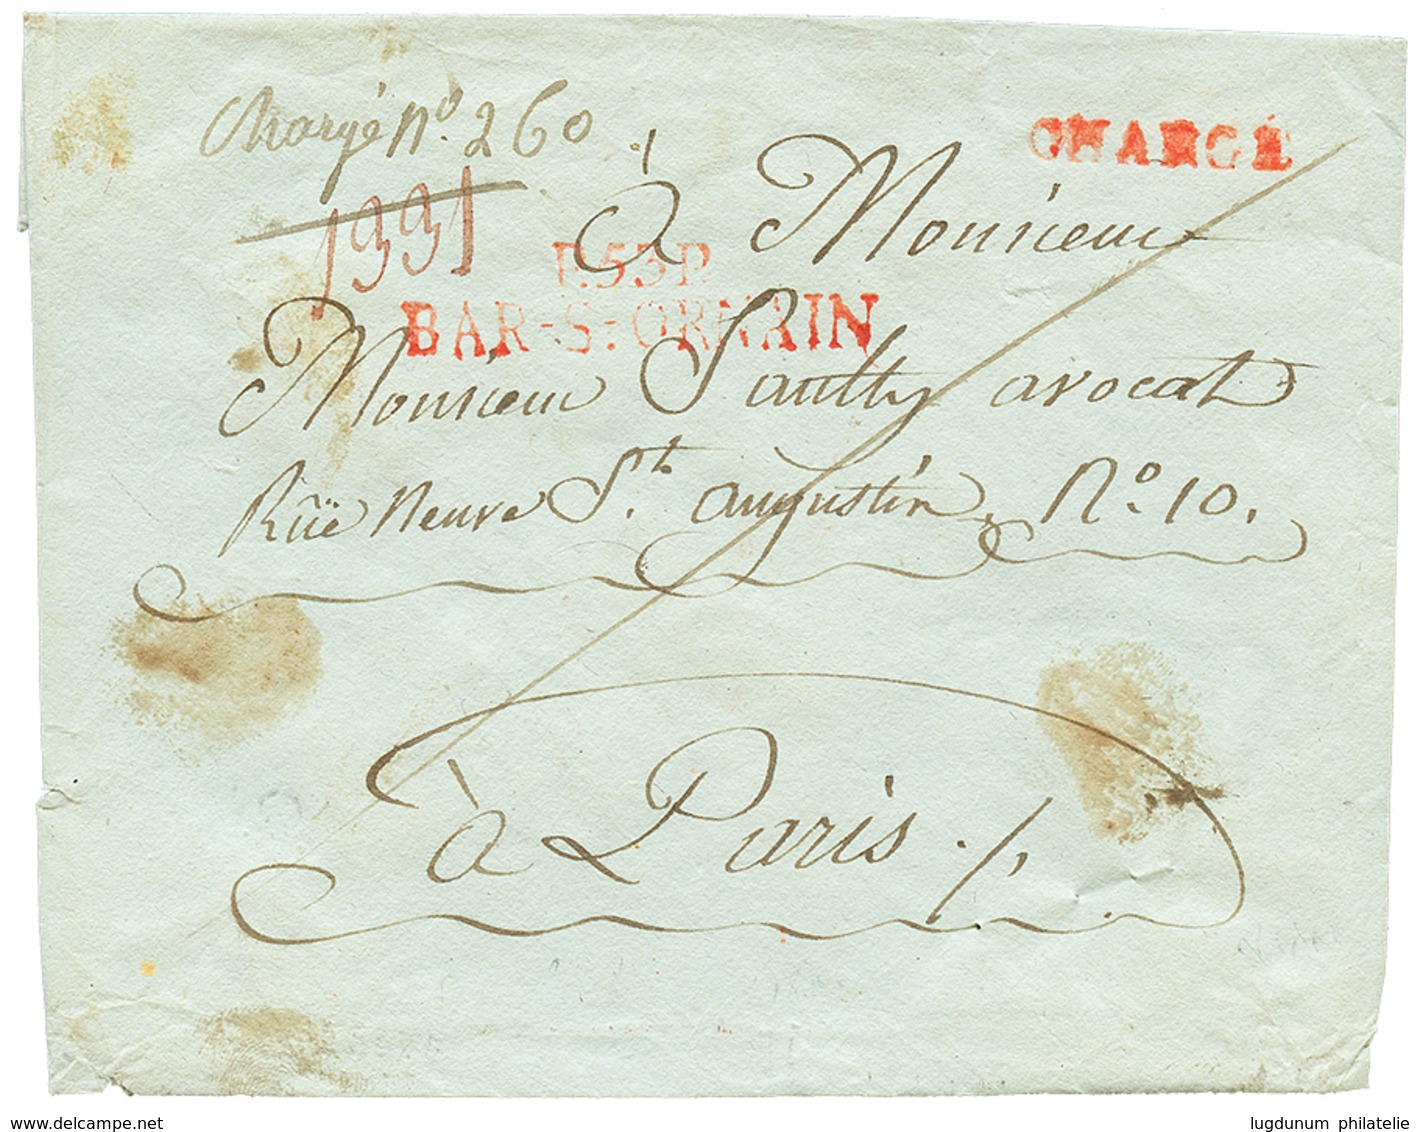 Chargé N.º 260
CHARGÉ
1991
à Monsieur
P.53.P.
BAR-S-ORNAIN
Monsieur Saulty avocat
Rüe Neuve S.t augustin, N.º 10.
à Paris ./.
www.delcampe.net
lugdunum philatelie